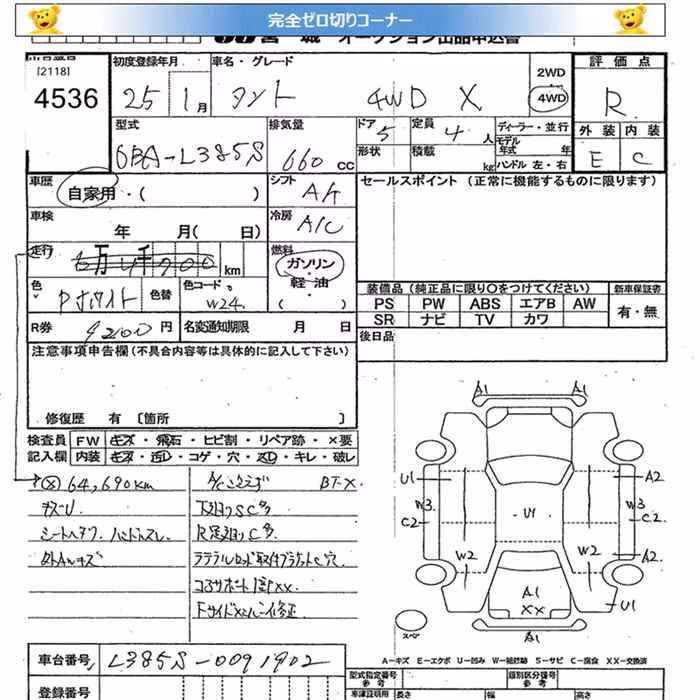 完全ゼロ切りコーナー
宮城 オークション出品申込書
[2118]
4536
初度登録年月
25 1月
車名・グレード
タント 4WD X
2WD
4WD
評価点
R
型式
6BA-L385S
排気量
660 CC
ドア
5
定員
4 人
形状
積載
kg
ディーラー・並行
モデル年式 年
ハンドル 左・右
外装 内装
E C
車歴
自家用・( )
シフト
A/T
セールスポイント (正常に機能するものに限ります)
車検
年 月( 日)
冷房
A/C
走行
万 千
km
燃料
ガソリン
・
軽油
色
Pホワイト
色替
色コード
W24
装備品 (純正品に限り○をつけてください)
新車保証書
PS PW ABS エアB AW
有・無
SR ナビ TV カワ
R券
9200 円
名変通知期限 月 日
後日品
注意事項申告欄 (不具合内容等は具体的に記入して下さい)
修復歴 有 [箇所 ]
検査員記入欄
FW キズ・飛石・ヒビ割・リペア跡・×要
内装 キズ・汚レ・コゲ・穴・スレ・キレ・破レ
64,690km
キズU
シートヘタリ. ハンドルスレ
外Aルキズ
A/Cこときず BT-X
下廻りSC多
R足廻りC多
ラテラルロッド取付ブラケットC穴
コアサポート
FサイドXXハーイ修正
A1 A1
U1 A2
W3 W3
C2 C2
U1
W2 W2
A2
A1
XX
U1
A1
スペア
A−キズ E−エクボ U−凹み W−補修跡 S−サビ C−腐食 XX−交換済
車台番号
L385S-0091902
型式指定番号
参考
類別区分番号
参考
登録番号
車庫証明用 長さ 幅 高さ